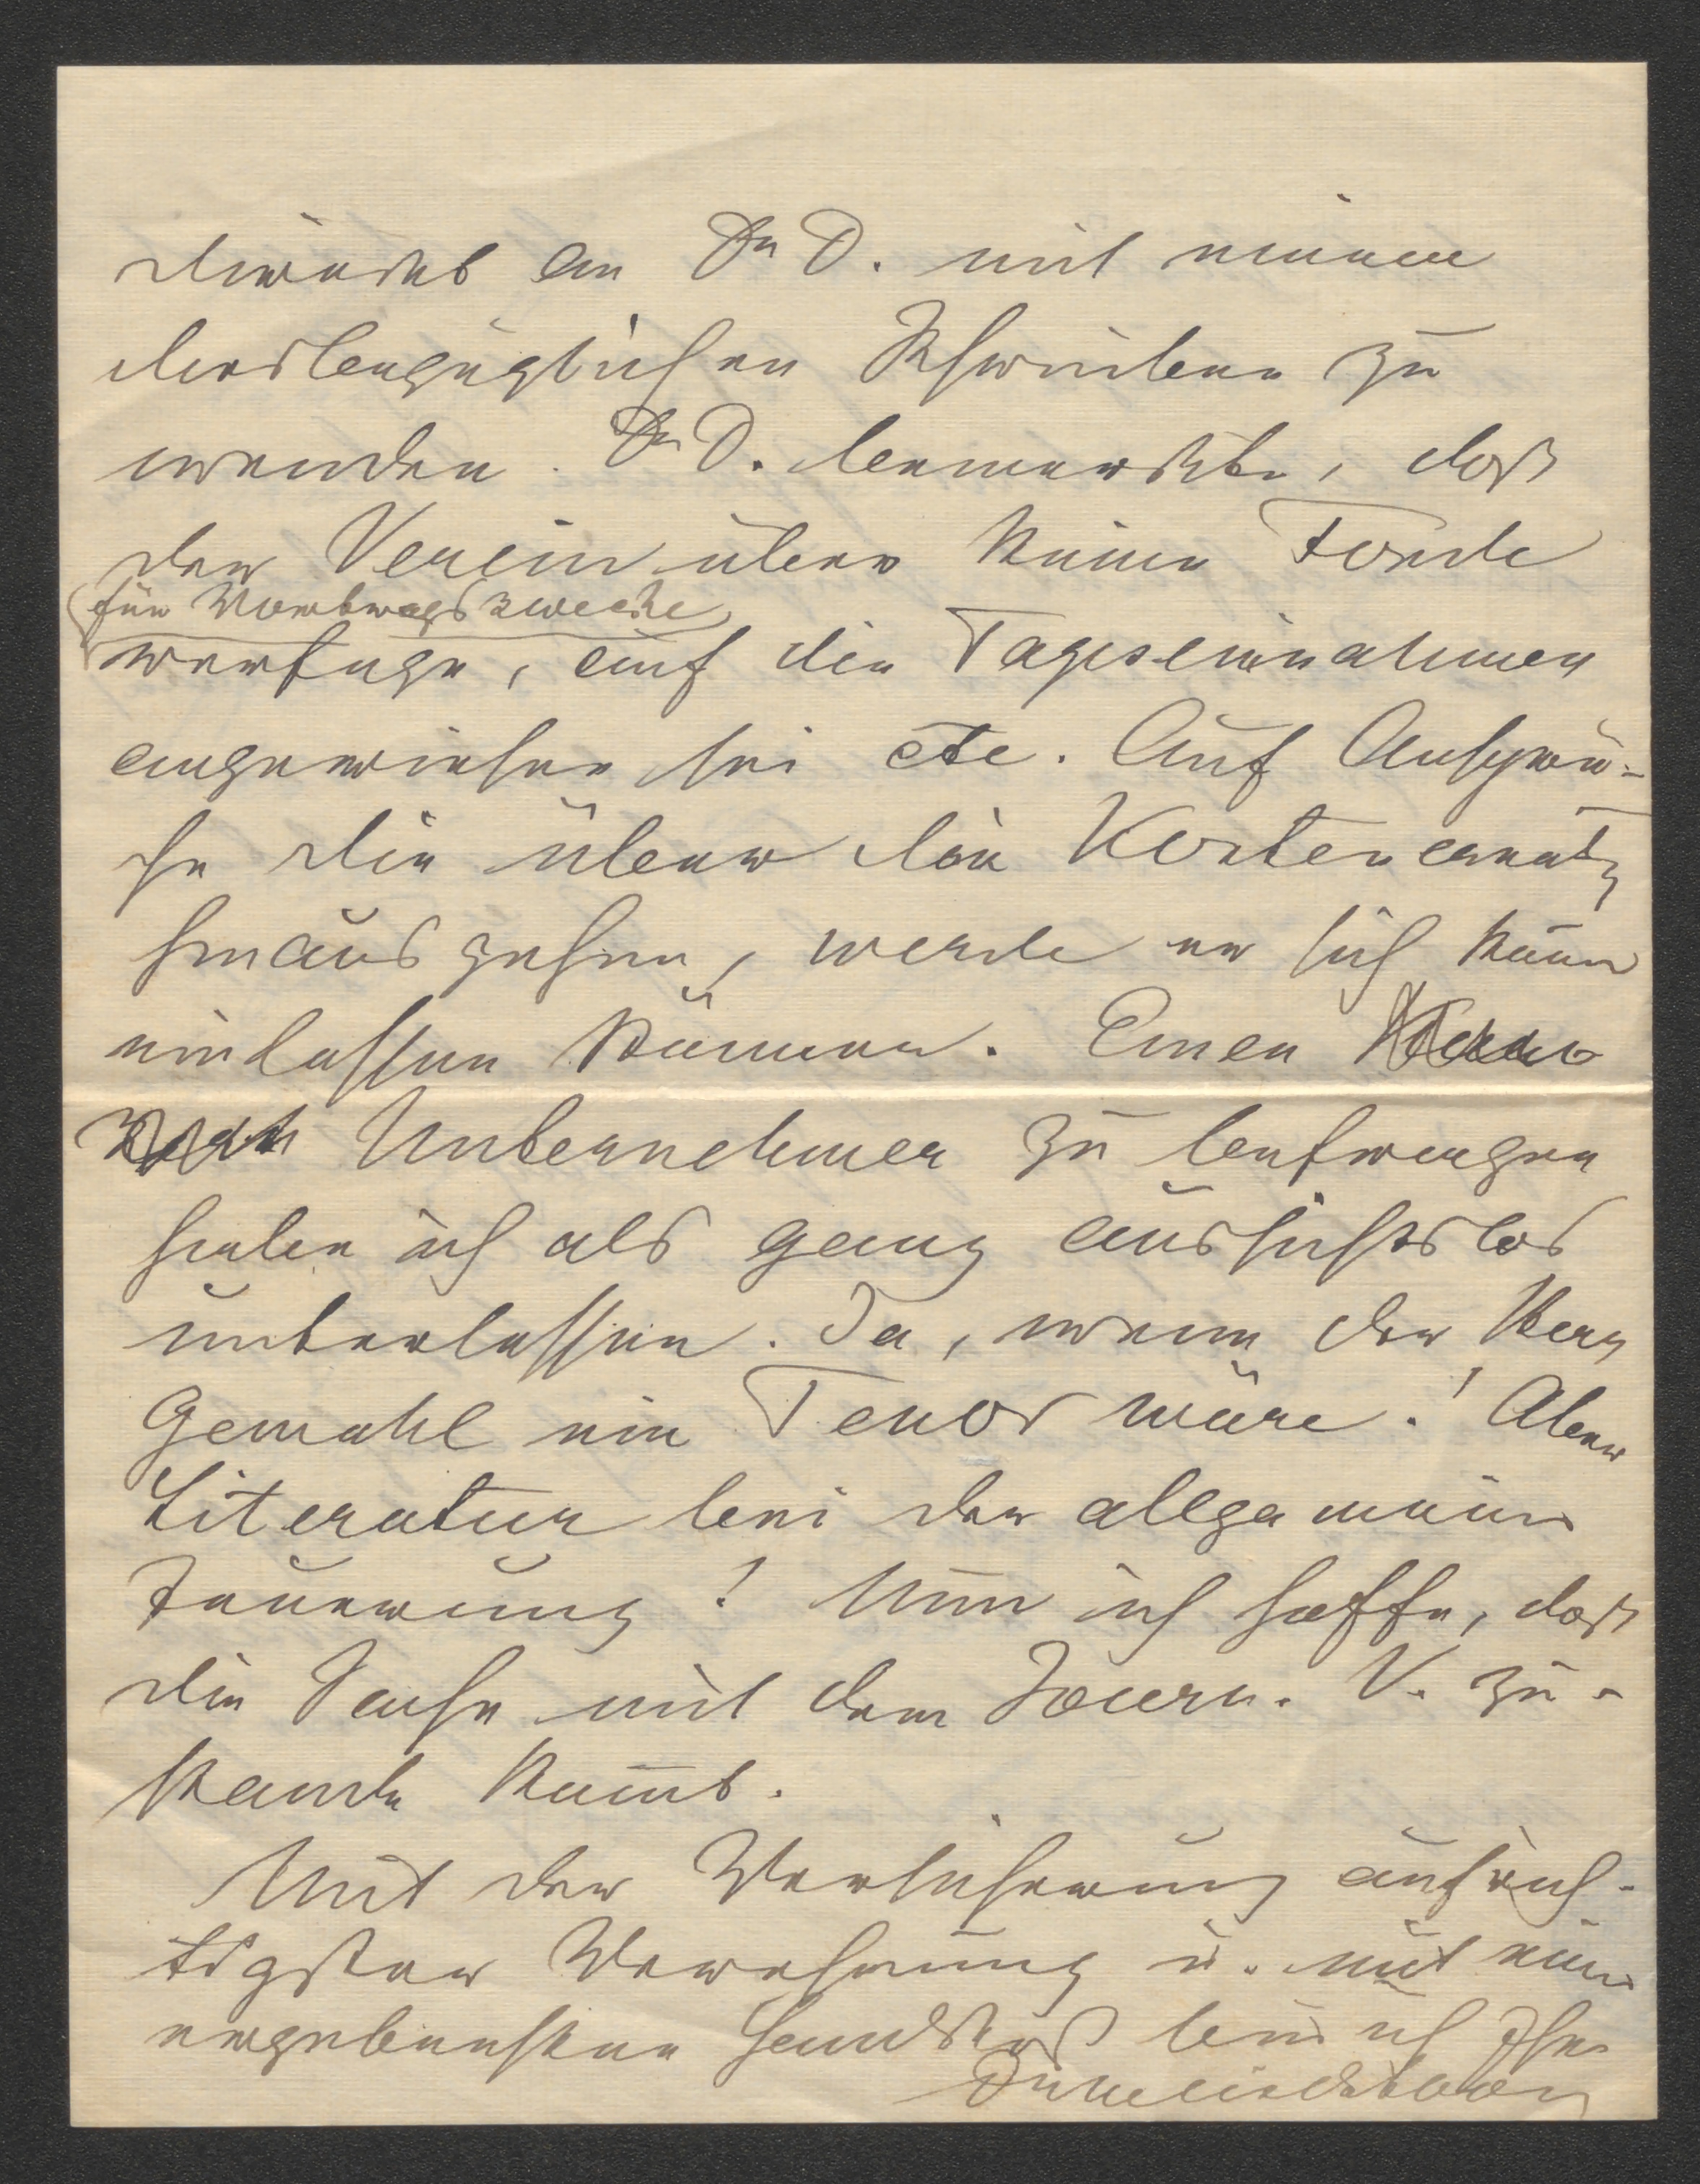 direkt an Dr D. mit einem
diesbezüglichen Schreiben zu
wenden. Dr D. bemerkte, daß
der Verein über keine Fonde
für Vortragszwecke
verfüge, auf die Tageseinnahmen
angewiesen sei etc. Auf Ansprü-
che die über den Kostenersatz
hinausgehen, werde er sich kaum
einlassen können. Einen
Unternehmer zu befragen
habe ich als ganz aussichtslos
unterlassen. Ja, wenn der Herr
Gemahl ein Tenor wäre! Aber
Literatur bei der allgemeinen
Teuerung! Nun ich hoffe, daß
die Sache mit dem Journ. V. zu-
stande kommt.
Mit der Versicherung aufrich-
tigster Verehrung u. mit einem
ergebensten Handkuß bin ich Ihr